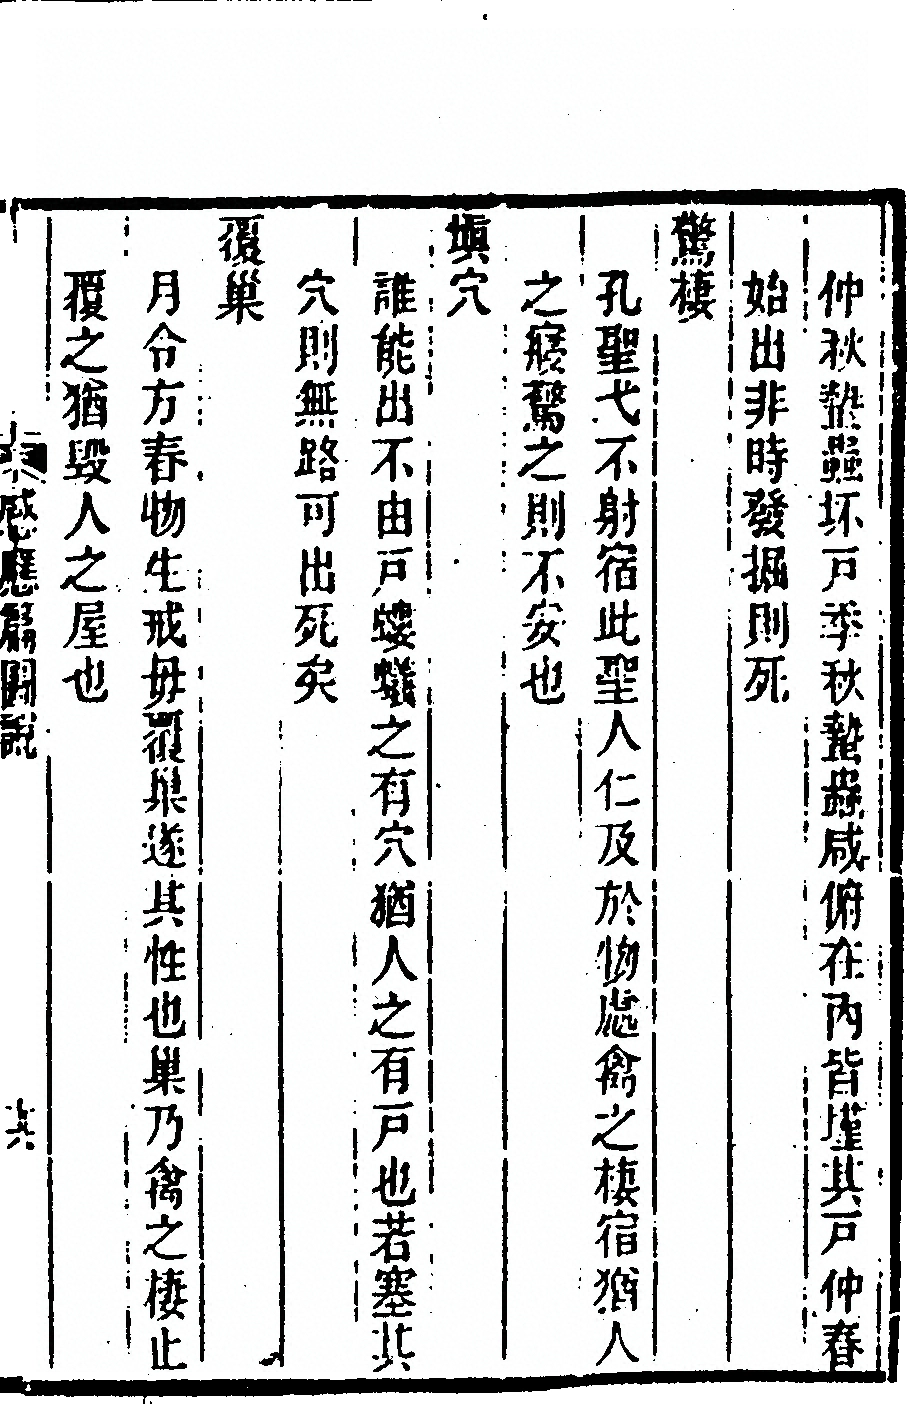 仲秋蟄蟲坏戸季秋蟄蟲咸俯在內皆墐其戸仲春
始出非時發掘則死
驚棲
孔聖弋不射宿此聖人仁及於物處禽之棲宿猶人
之寢驚之則不安也
塡穴
誰能出不由戸螻蟻之有穴猶人之有戸也若塞其
穴則無路可出死矣
覆巢
月令方春物生戒毋覆巢遂其性也巢乃禽之棲止
覆之猶毀人之屋也
感應篇圖說